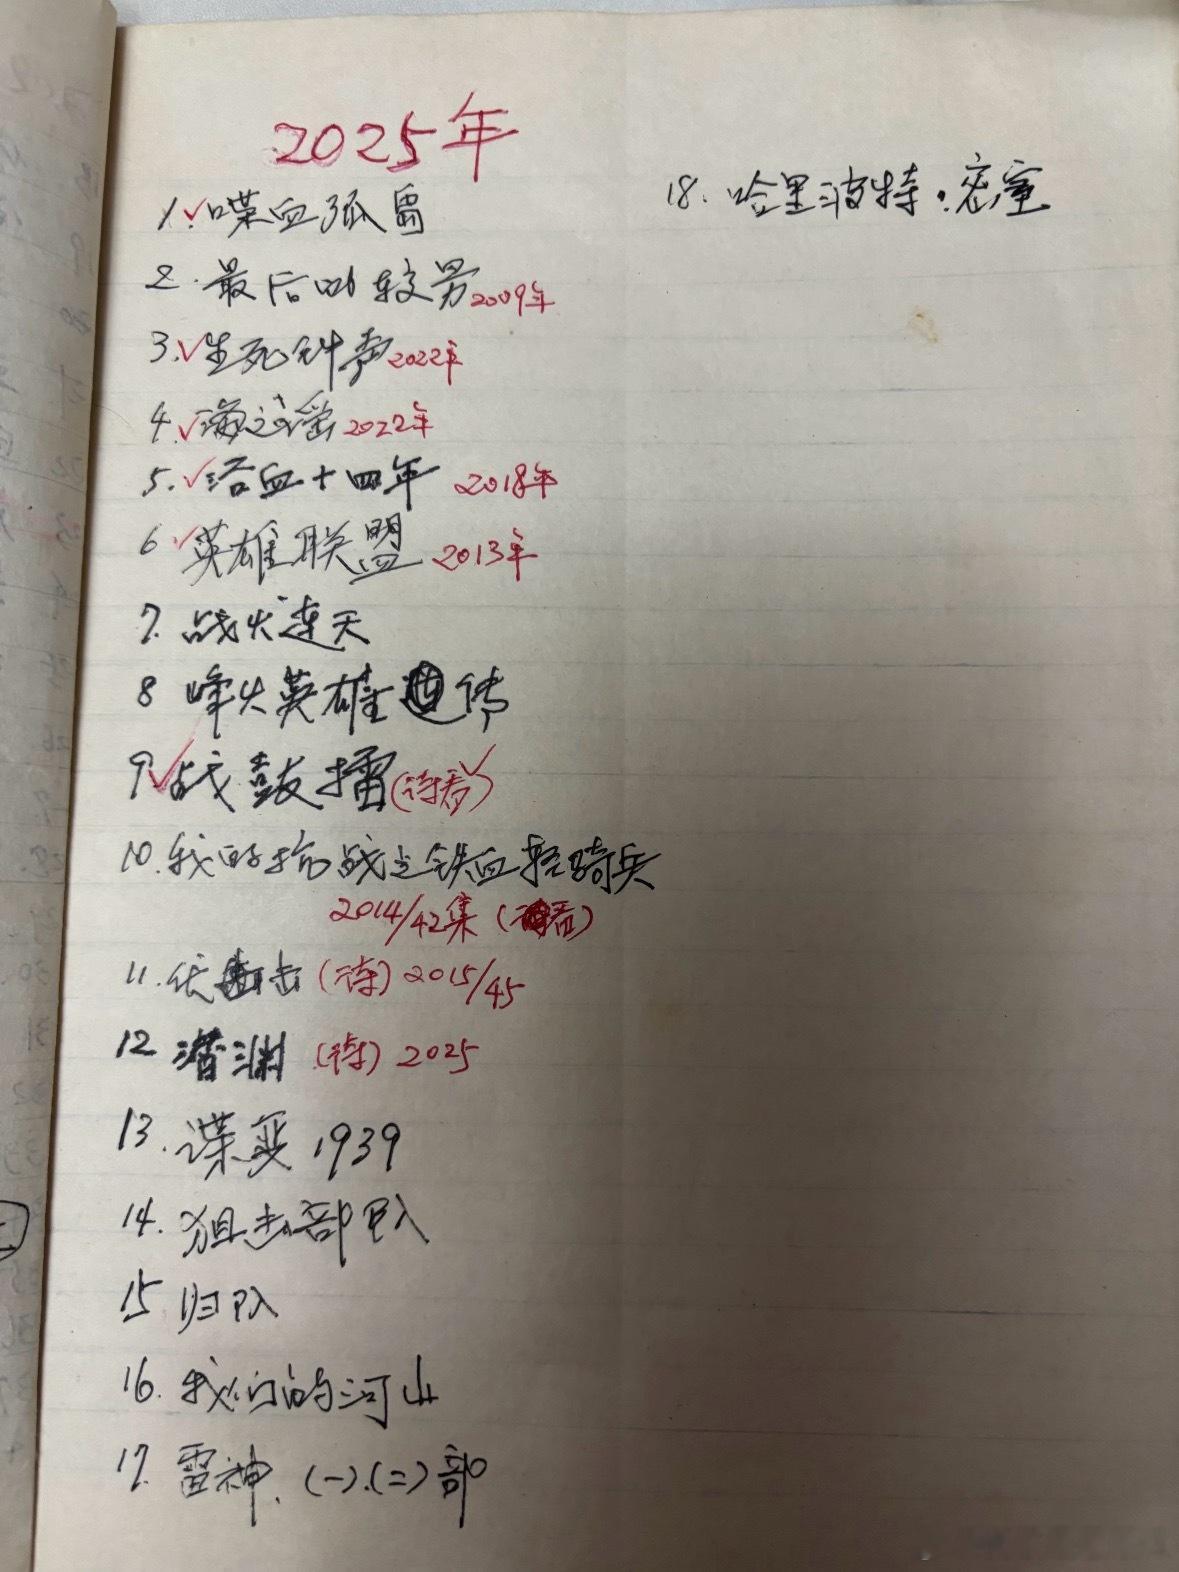 2025年
1.✓喋血孤岛
2.最后的较男2009年
3.✓生死钟声2022年
4.✓谣2022年
5.✓浴血十四年 2018年
6 ✓英雄联盟 2013年
7. 战火连天
8 峰火英雄传
9✓战鼓擂(待看✓)
10.我的抗战之铁血轻骑兵
2014/42集(看)
11.伏击(待)2015/45
12 潜渊(待)2025
13.谍变1939
14.狙击部队
15 归队
16.我们的河山
17.雷神.(一).(二)部
18.哈里波特·密室